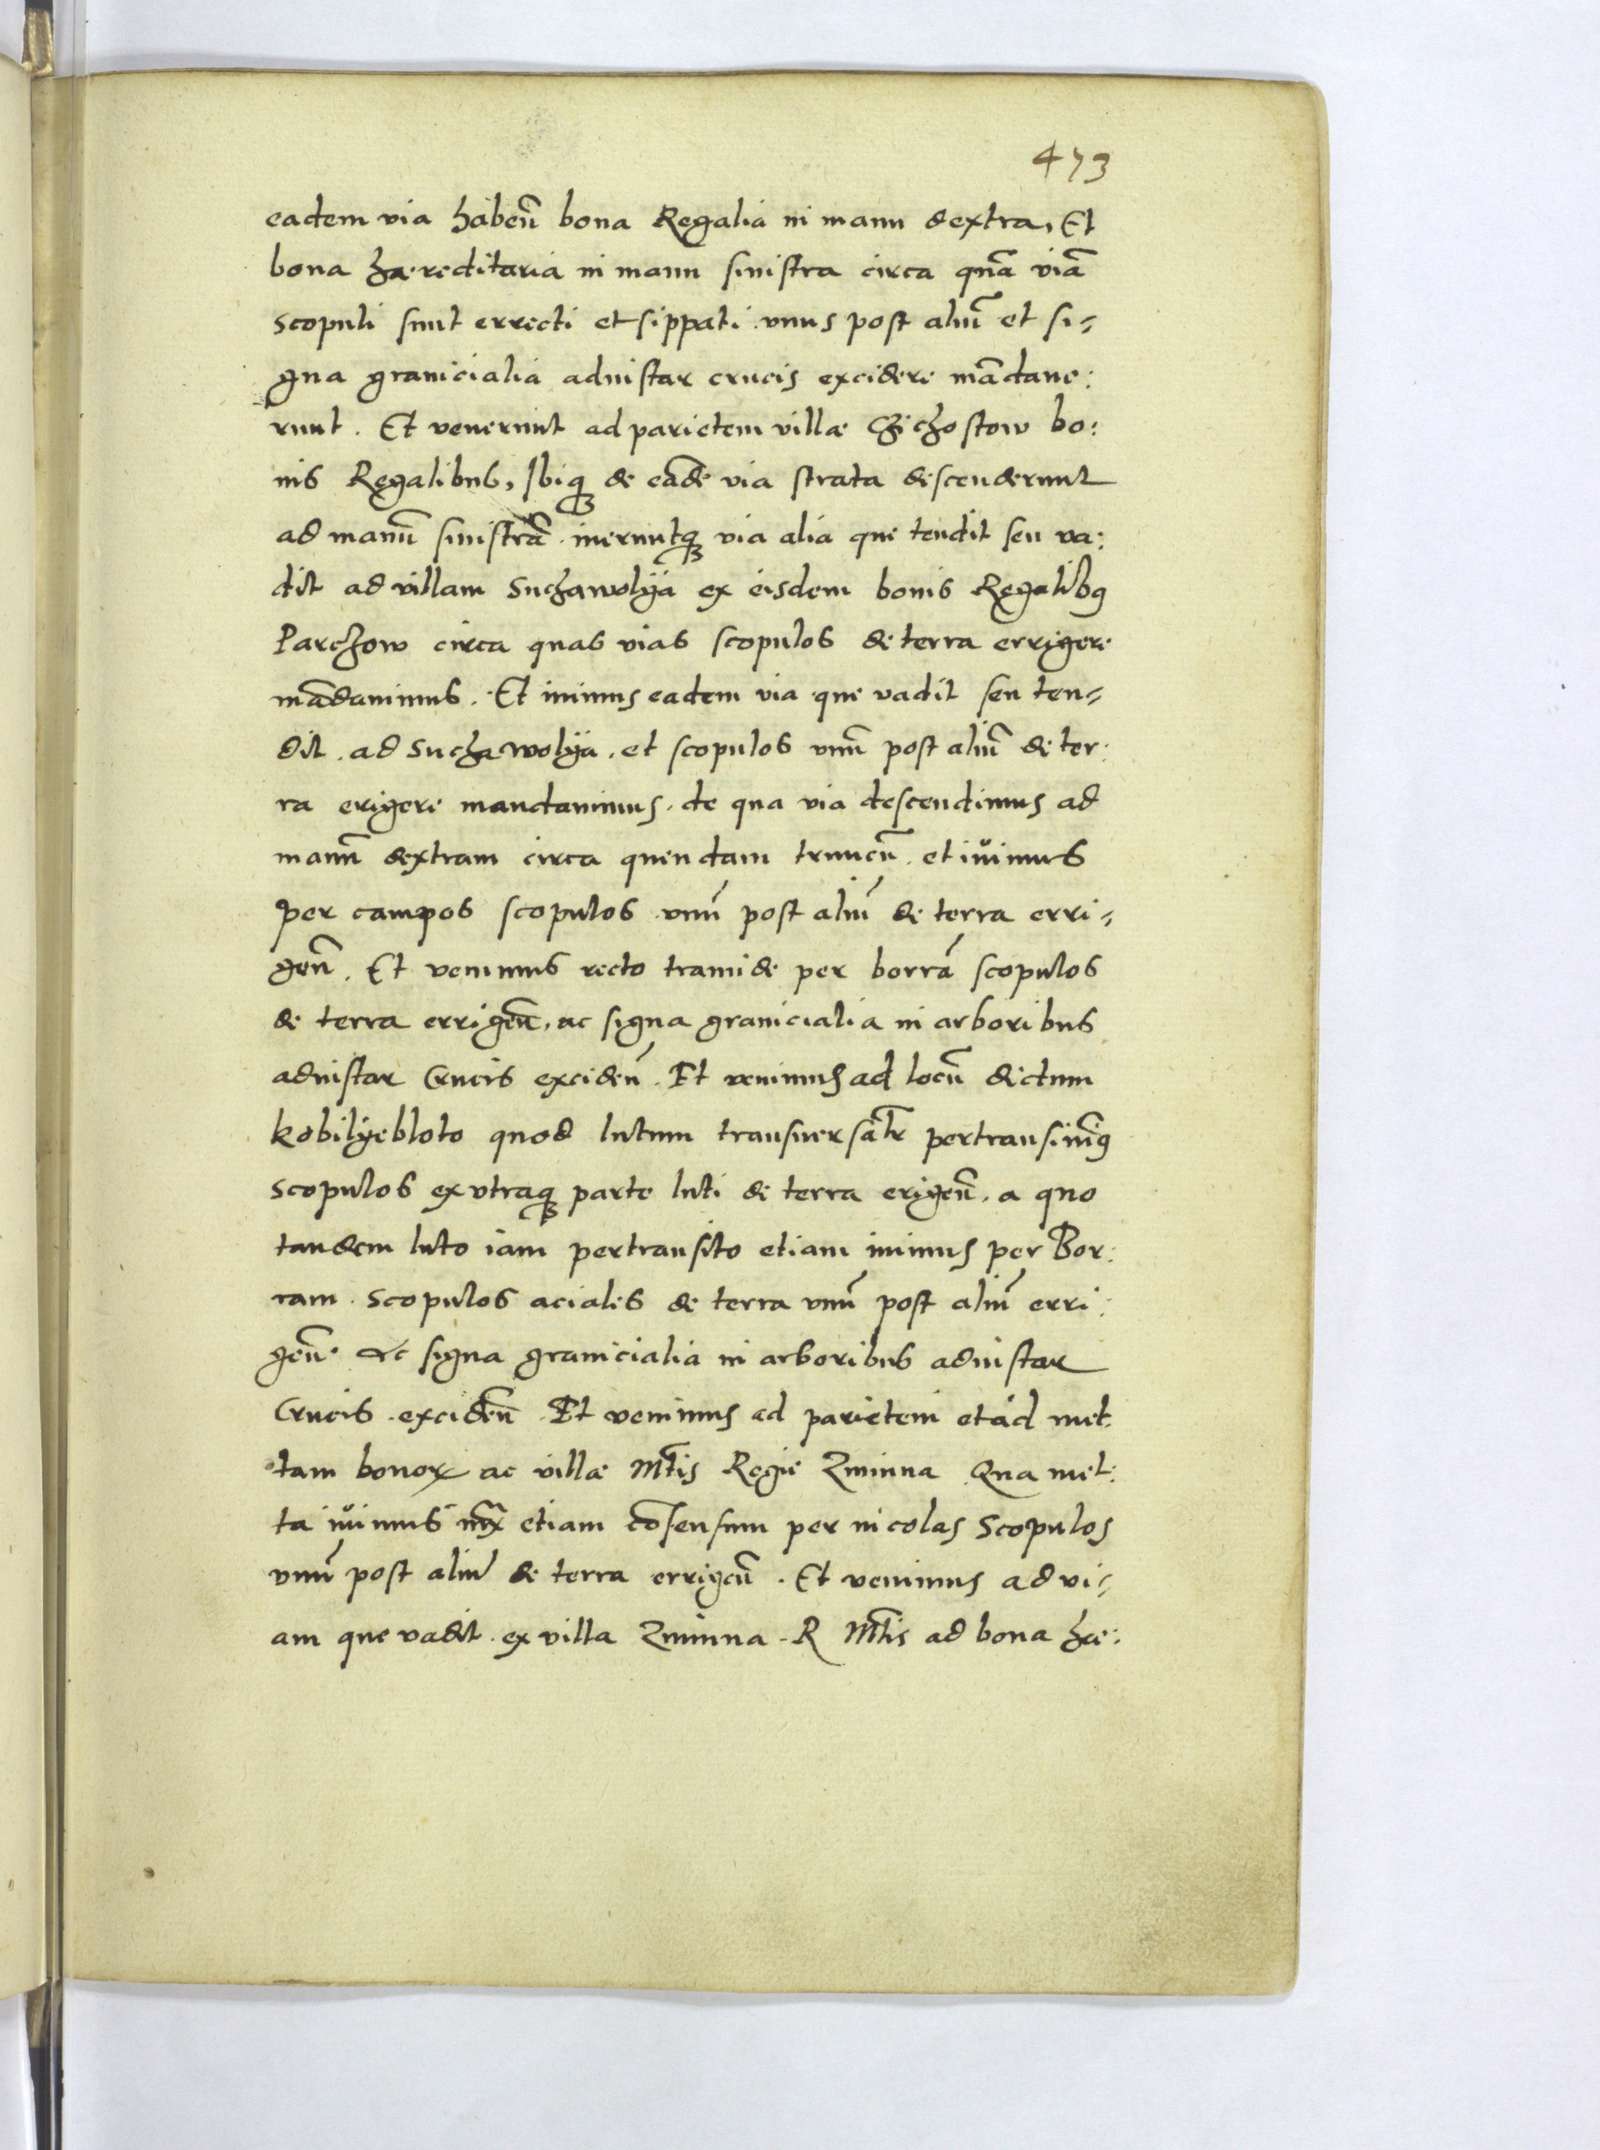 473
eadem via habeñ bona Regalia in manu dextra, Et
bona haereditaria in manu sinistra circa quã viã
scopuli sunt errecti et sippati vnus post aliũ et si-
gna granicialia adinstar crucis excidere mãdaue:
runt. Et venerunt ad parietem villae Chichostow bo:
nis Regalibus, Ibiq de eãde via strata descenderunt
ad manũ sinistrã iueruntq via alia que tendit seu va:
dit ad villam Suchawolÿa ex eisdem bonis Regalibq
Parchow circa quas vias scopulos de terra errigere
mãdauimus. Et iuimus eadem via que vadit seu ten-
dit ad Suchawolÿa, et scopulos vnũ post aliũ de ter:
ra erigere mandauimus, de qua via descendimus ad
manũ dextram circa quendam truncũ et iuimus
per campos scopulos vnũ post aliũ de terra erri-
geñ. Et venimus recto tramide per borrã scopulos
de terra errigeñ, ac signa granicialia in arboribus
adinstar Crucis excideñ. Et venimus ad locũ dictum
Kobilÿebloto quod lutum transuersalr̃ pertransiuimq
scopulos ex vtraq parte luti de terra erigeñ, a quo
tandem luto iam pertransito etiam iuimus per Bor:
ram Scopulos aciales de terra vnũ post aliũ erri:
geñ. Ac signa granicialia in arboribus adinstar
Crucis excideñ. Et venimus ad parietem et ad met:
tam bonoꝝ ac villae Mtis Regie Zminna Qua met:
ta iuimus etiam cõsensum per nicolas Scopulos
vnũ post aliũ de terra errigeñ. Et venimus ad vi-
am que vadit ex villa Zminna R Mtis ad bona hae: